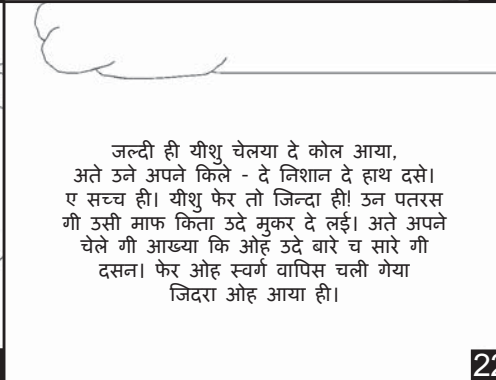 जल्दी ही यीशु चेलया दे कोल आया,
अते उने अपने किले - दे निशान दे हाथ दसे।
ए सच्च ही। यीशु फेर तो जिन्दा ही! उन पतरस
गी उसी माफ किता उदे मुकर दे लई। अते अपने
चेले गी आख्या कि ओह उदे बारे च सारे गी
दसन। फेर ओह स्वर्ग वापिस चली गेया
जिदरा ओह आया ही।
22